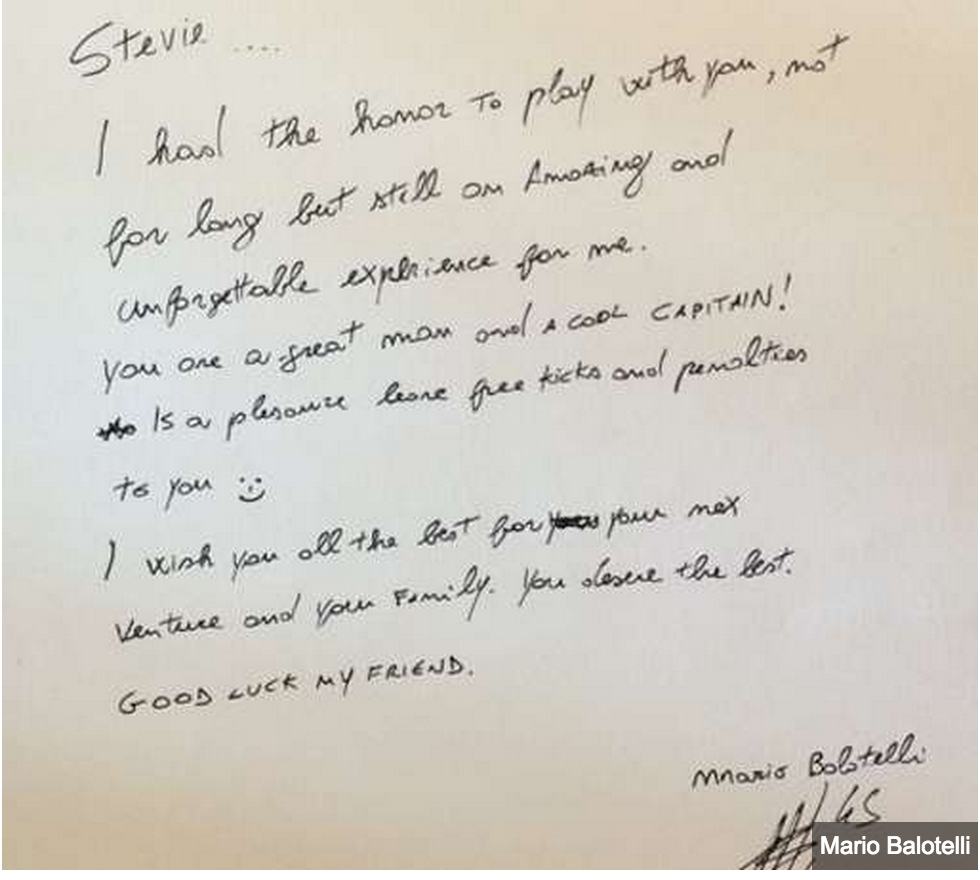 Stevie ....
I had the honor to play with you, not
for long but still an Amazing and
unforgettable experience for me.
you are a great man and a cool CAPITAIN!
Is a plesaure leave free kicks and penalties
to you :)
I wish you all the best for your nex
venture and your Family. You deserve the best.
GOOD LUCK MY FRIEND.
Mario Balotelli
45
Mario Balotelli